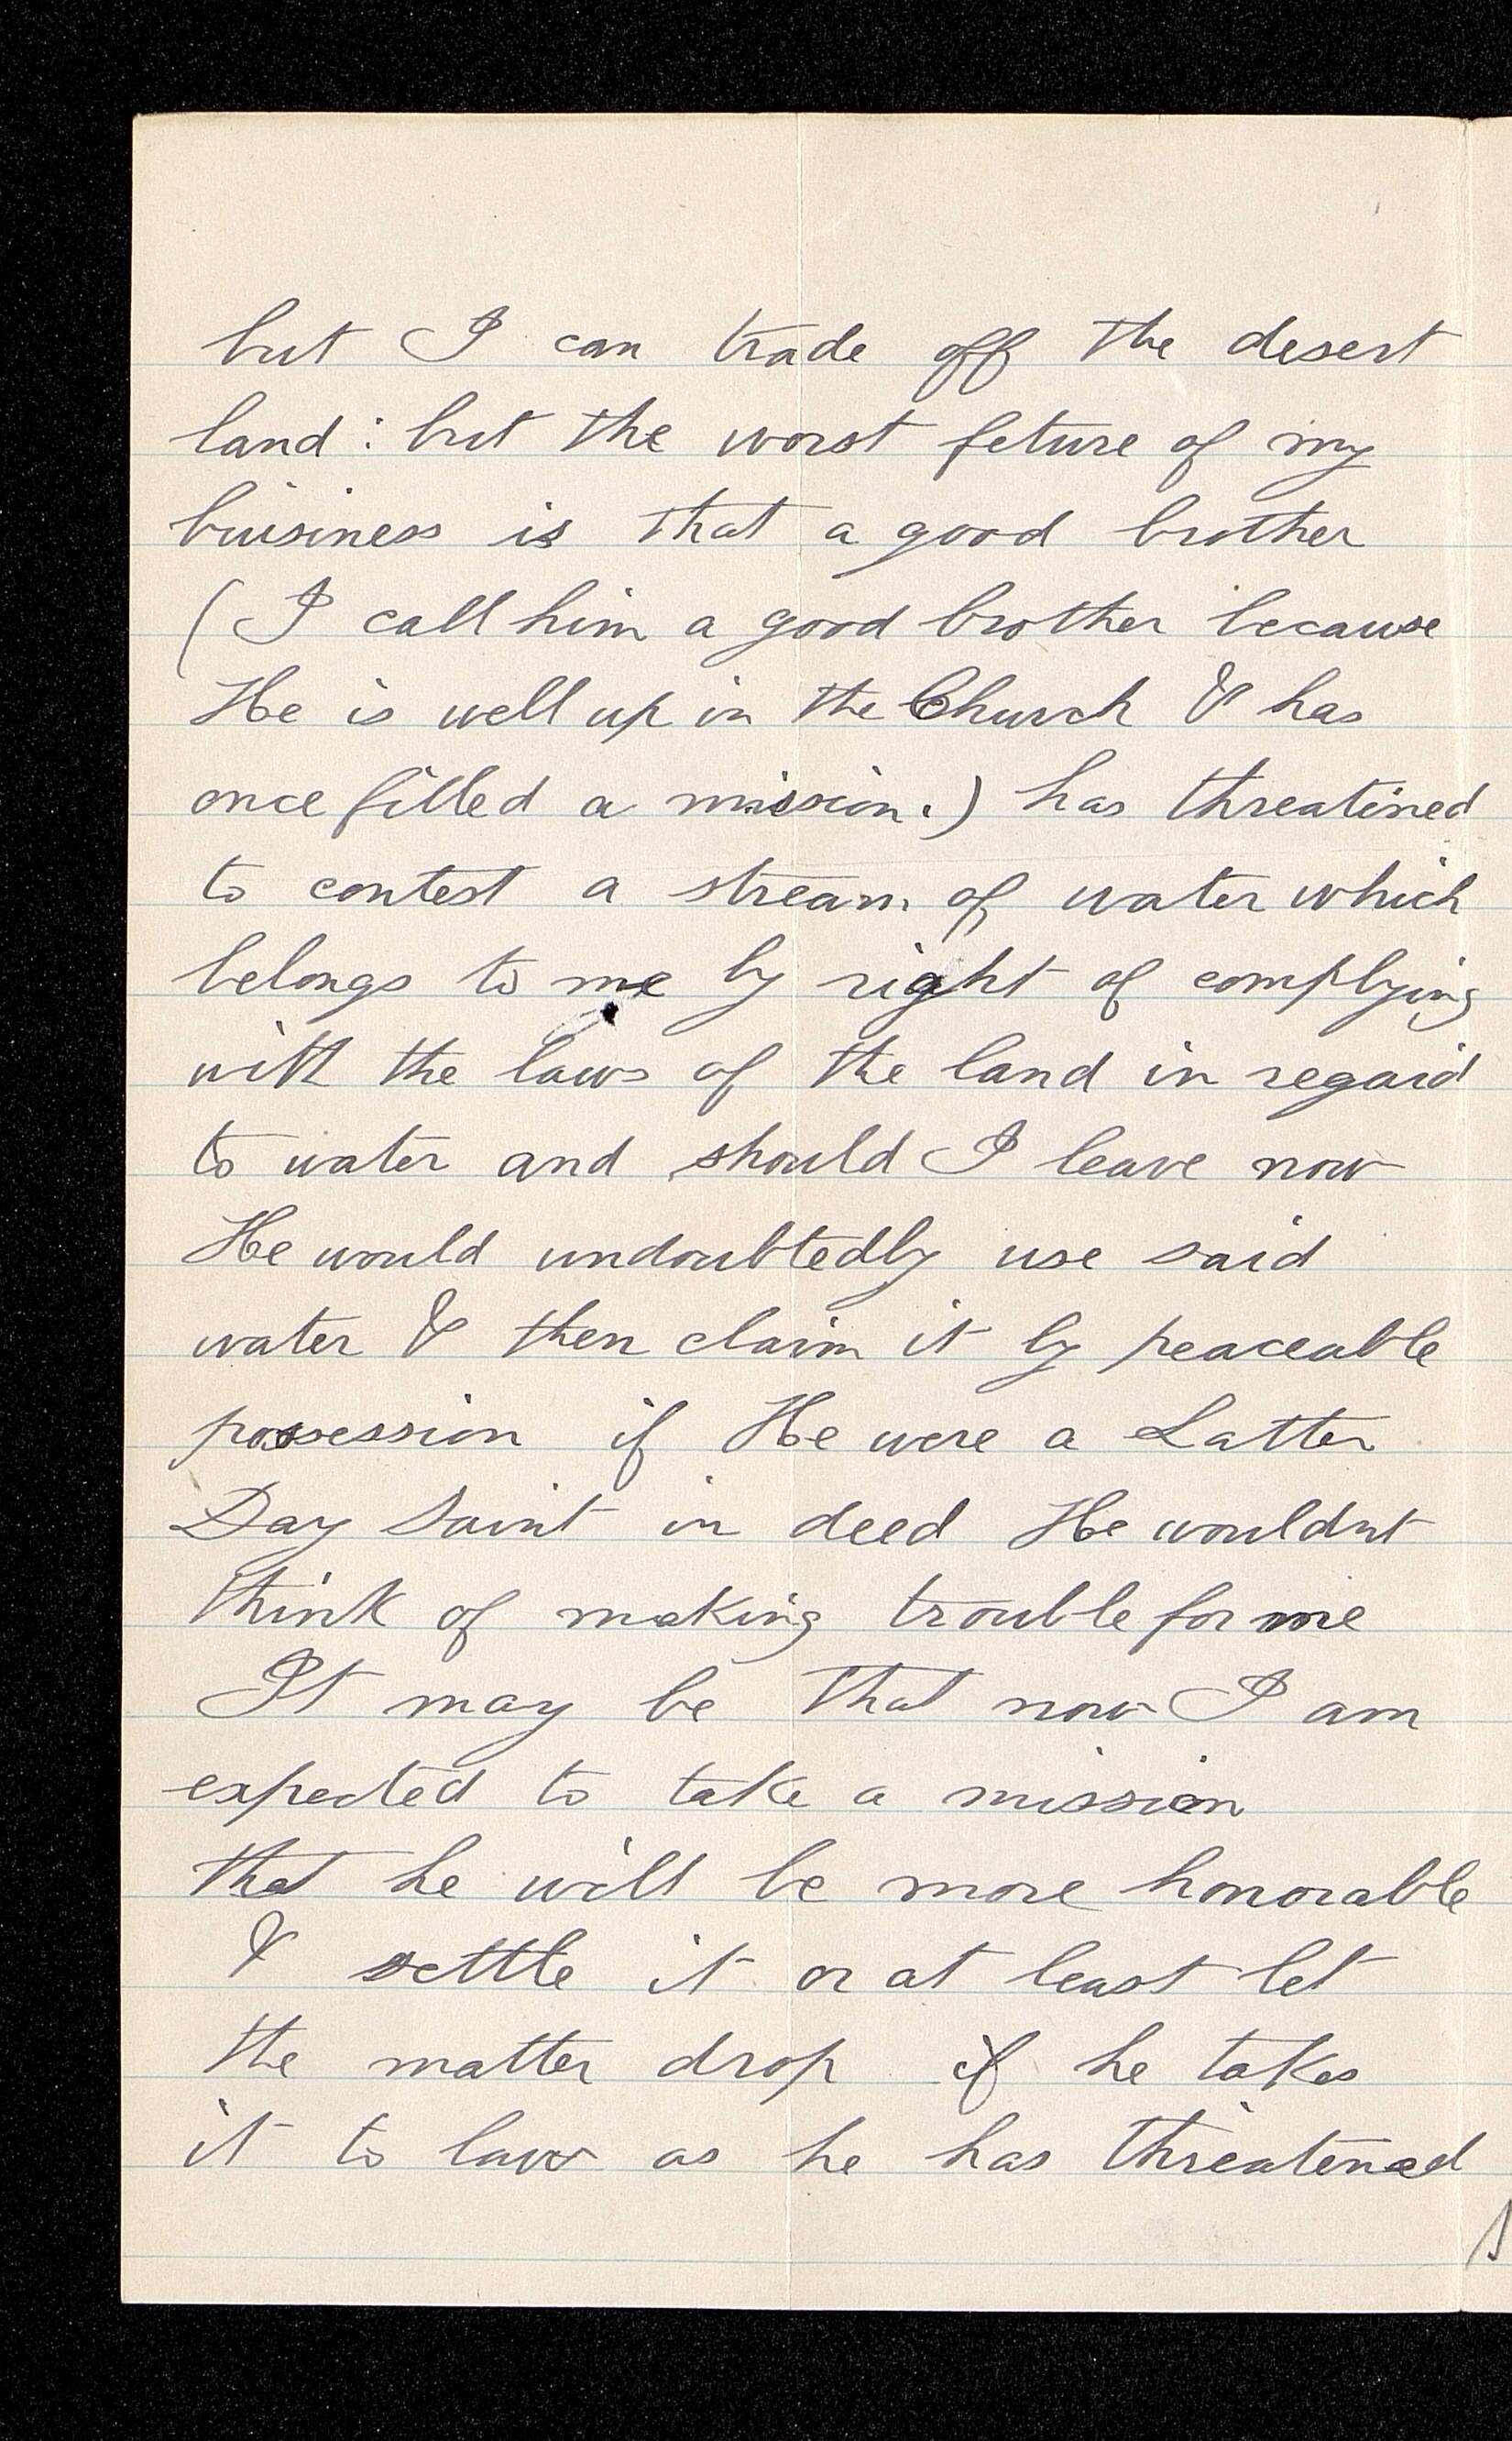 but I can trade off the desert
land : but the worst feture of my
buisiness is that a good brother
(I call him a good brother because
He is well up in the Church & has
once filled a mission.) has threatined
to contest a stream of water which
belongs to me by right of complying
with the laws of the land in regard
to water and should I leave now
He would undoubtedly use said
water & then claim it by peaceable
possession if He were a Latter
Day Saint in deed He wouldnt
think of making trouble for me
It may be that now I am
expected to take a mission
that he will be more honorable
& settle it or at least let
the matter drop if he takes
it to law as he has threatened